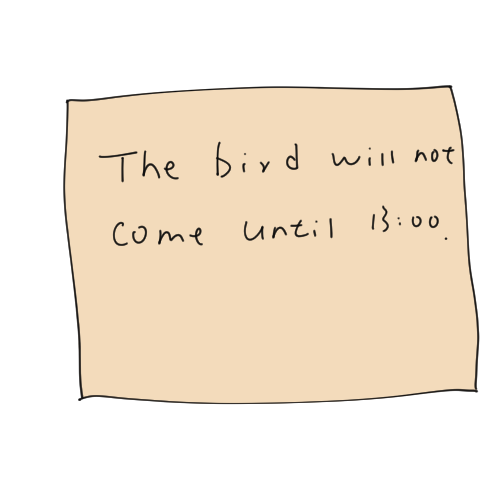 The bird will not
come until 13:00.